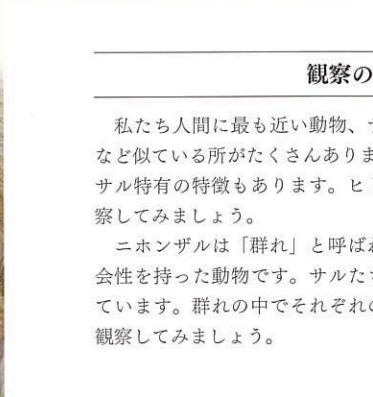 観察の
私たち人間に最も近い動物、
など似ている所がたくさんありま
サル特有の特徴もあります。ヒ
察してみましょう。
ニホンザルは「群れ」と呼ばれ
会性を持った動物です。サルた
ています。群れの中でそれぞれの
観察してみましょう。